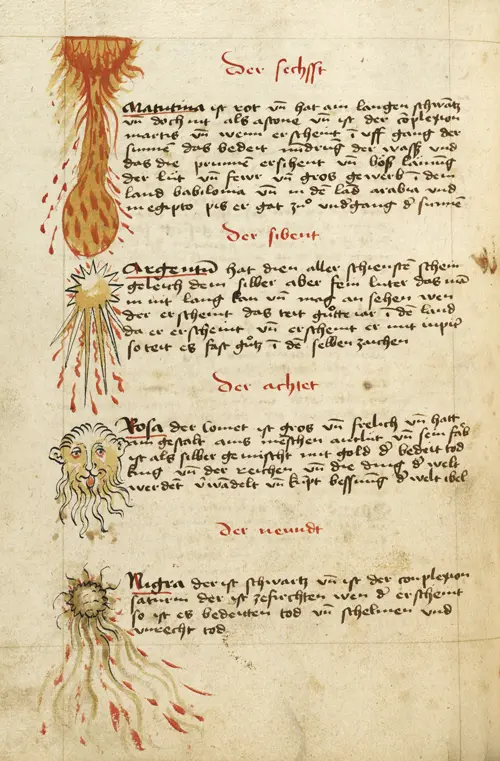 Der sechsst
Matutina ist rot vn̄ hat ain langen schwātz
vn̄ doch nit als astone vn̄ ist der cōplexion
martis vn̄ wenn er scheint ī vff gang der
sunnē das bedeit nidrūg der waſß vnd
das die prunnen ersihent vn̄ böß
der lüt vn̄ fewr vn̄ gros gewerb ī dem
land babilonia vn̄ in dē lād arabia vnd
in egipto pis er gat zuͦ vndgang d' sunnē
Der sibent
Argentū hat dien aller schienstē schein
geleich dem silber aber sein luter das mā
in nit lang kan vn̄ mag an sehen wen
der erscheint das teit guͦtte iar ī dē land
da er erscheint vn̄ erscheint er mit
so teit es fast guͦtz ī dē selben zaichen
Der achtet
Rosa der comet ist gros vn̄ frelich vn̄ hatt
ain gestalt ains mēschen antlüt vn̄ sein farb
ist als silber gemischt mit gold d' bedeit tod
king vn̄ der reichen vn̄ die ding d' welt
werdēt v'wādelt vn̄ kūpt bessūng d' welt
Der neundt
Nigra der ist schwartz vn̄ ist der complexion
saturni der ist zefirchten wen d' erscheint
so ist es bedeitten tod vn̄ schelmen vnd
vnrecht tod